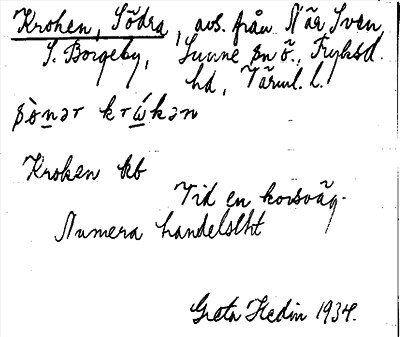 Kroken, Södra, avs. från När Sven,
S. Borgeby, Sunne sn ö., Fryksd.
hd, Värml. l.
sònər krẃkən
Kroken kb
Vid en korsväg.
Numera handelslht
Greta Hedin 1934.